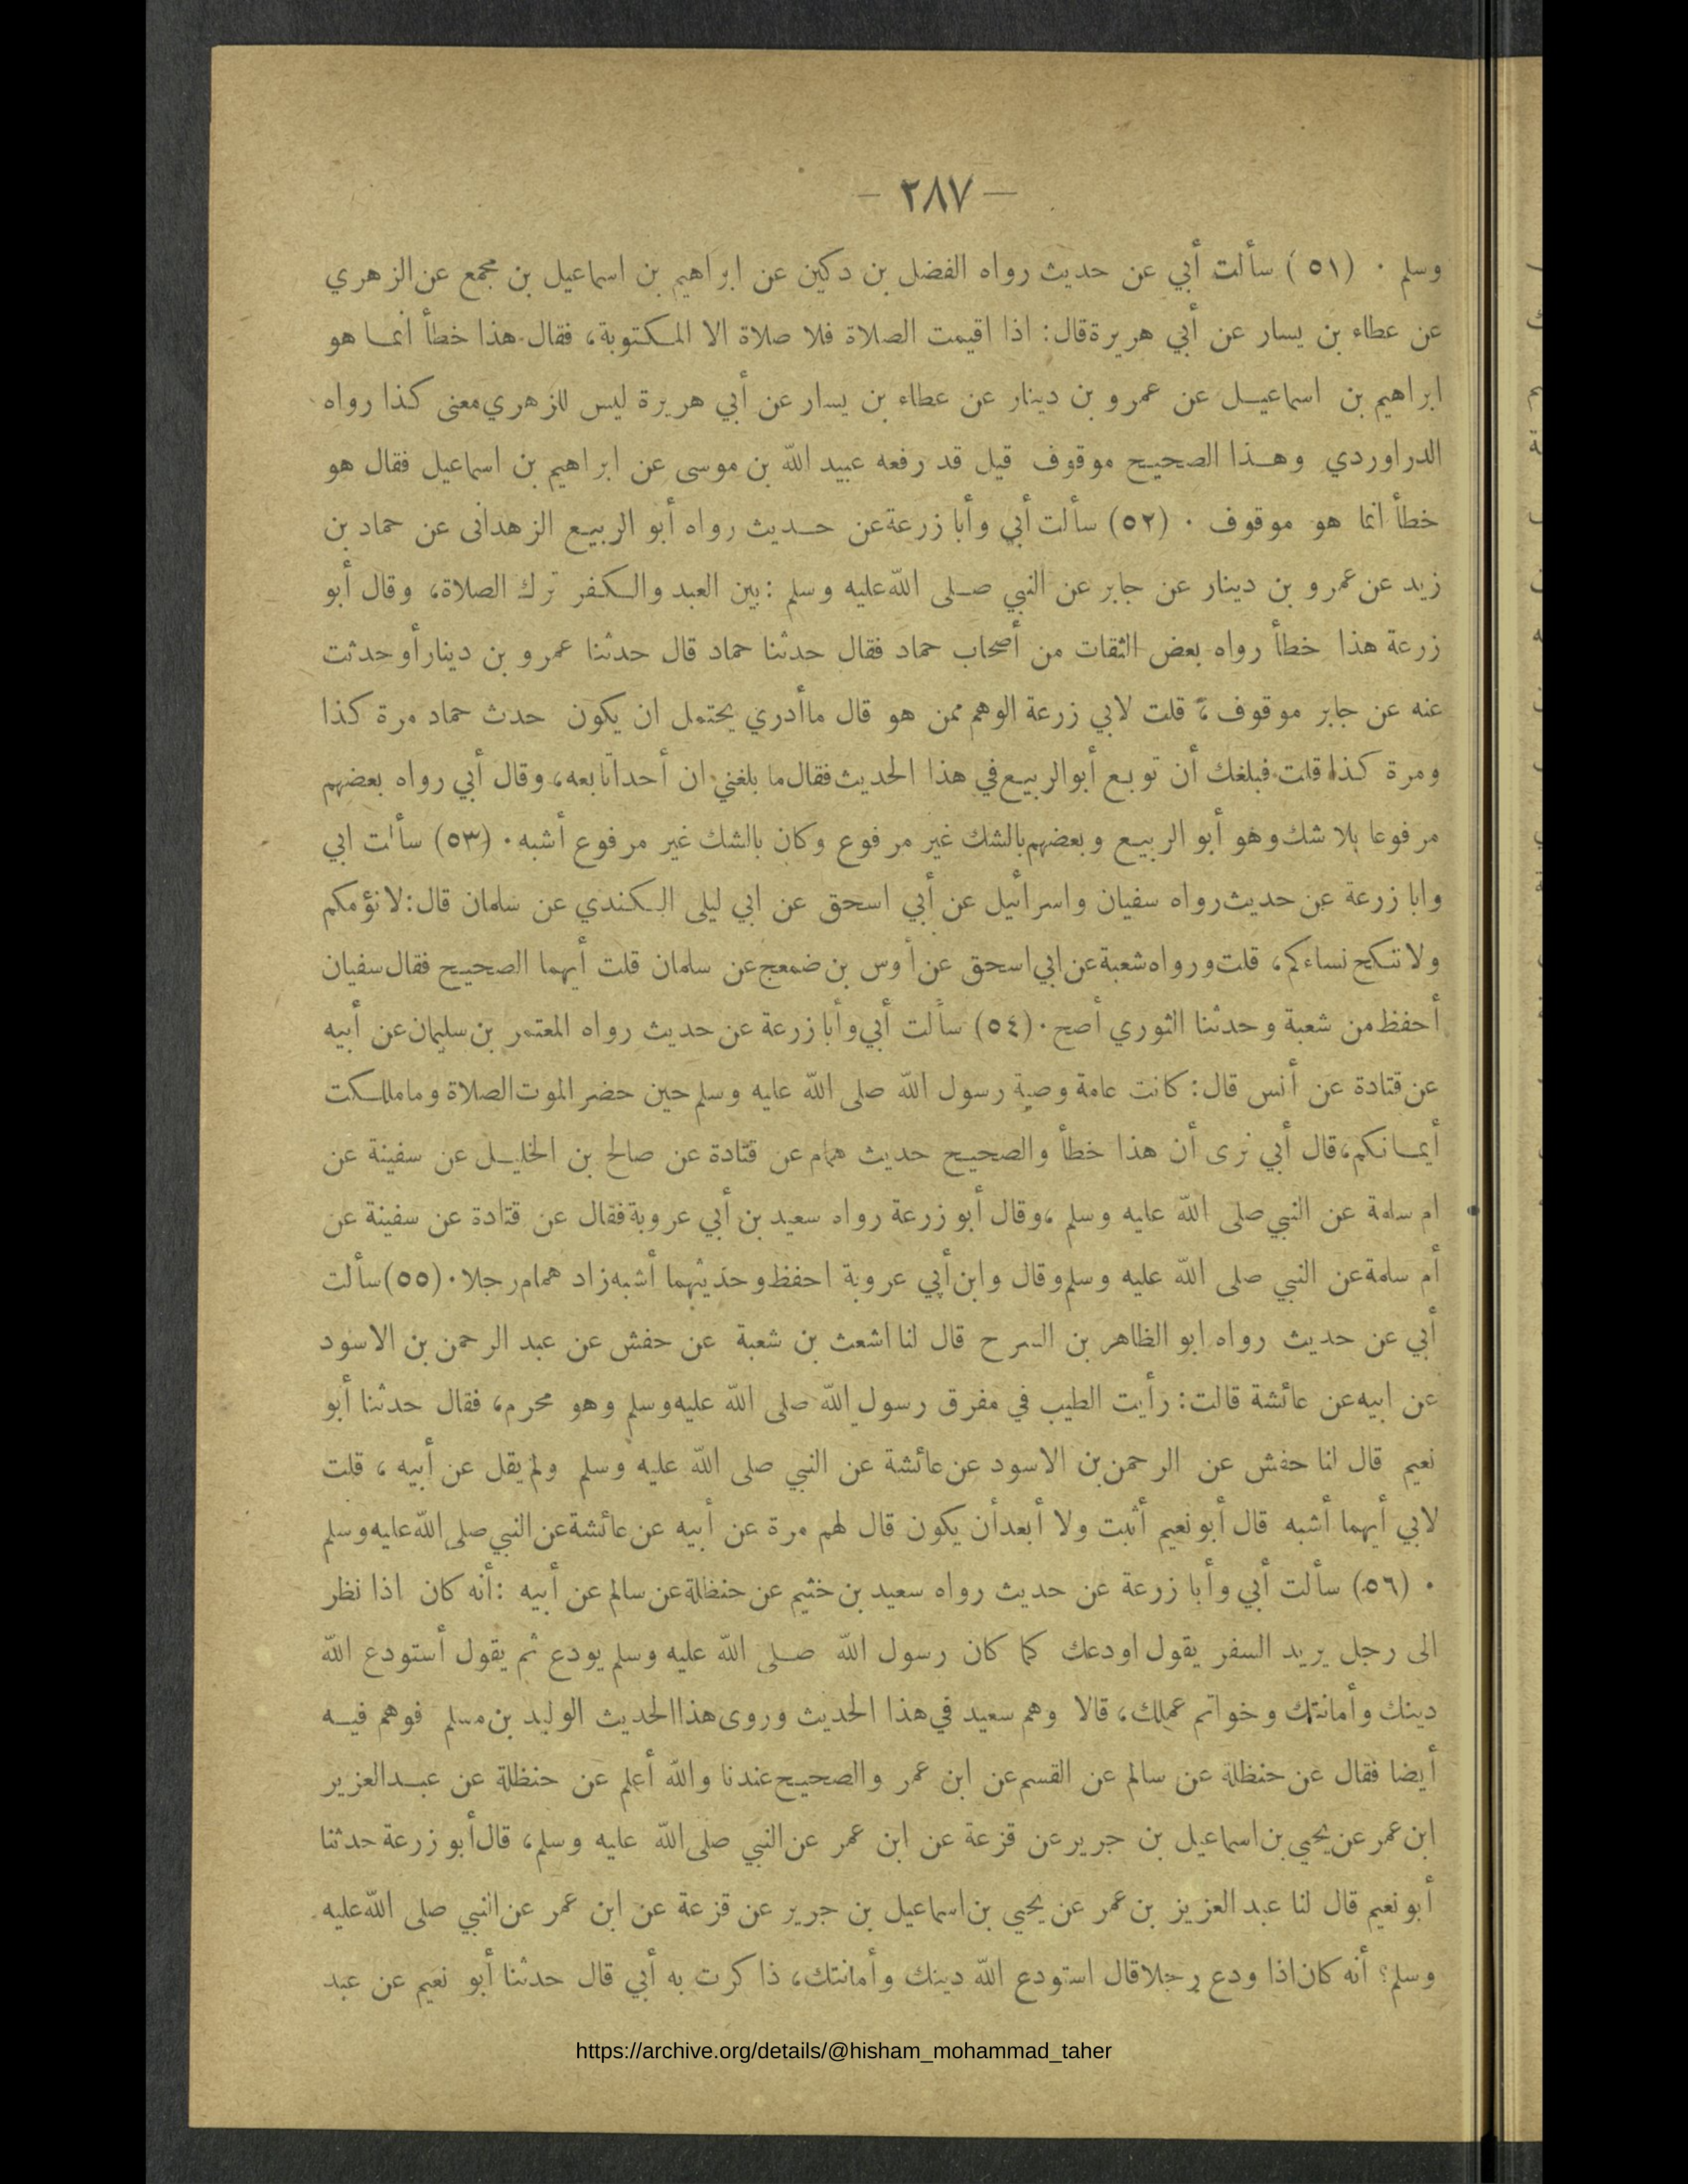 — ٢٨٧ —
وسلم ٠ (٥١) سألت أبي عن حديث رواه الفضل بن دكين عن ابراهيم بن اسماعيل بن مجمع عن الزهري
عن عطاء بن يسار عن أبي هريرة قال: اذا اقيمت الصلاة فلا صلاة الا المكتوبة، فقال هذا خطأ انما هو
ابراهيم بن اسماعيل عن عمرو بن دينار عن عطاء بن يسار عن أبي هريرة ليس للزهري معنى كذا رواه
الدراوردي وهذا الصحيح موقوف قيل قد رفعه عبيد الله بن موسى عن ابراهيم بن اسماعيل فقال هو
خطأ انما هو موقوف ٠ (٥٢) سألت أبي وأبا زرعة عن حديث رواه أبو الربيع الزهدانى عن حماد بن
زيد عن عمرو بن دينار عن جابر عن النبي صلى الله عليه وسلم : بين العبد والكفر ترك الصلاة، وقال أبو
زرعة هذا خطأ رواه بعض الثقات من أصحاب حماد فقال حدثنا حماد قال حدثنا عمرو بن دينار أو حدثت
عنه عن جابر موقوف، قلت لابي زرعة الوهم ممن هو قال ما أدري يحتمل ان يكون حدث حماد مرة كذا
ومرة كذا قلت فبلغك أن توبع أبو الربيع في هذا الحديث فقال ما بلغني ان أحدا تابعه، وقال أبي رواه بعضهم
مرفوعا بلا شك وهو أبو الربيع وبعضهم بالشك غير مرفوع وكان بالشك غير مرفوع أشبه ٠ (٥٣) سألت ابي
وابا زرعة عن حديث رواه سفيان واسرائيل عن أبي اسحق عن ابي ليلى الكندي عن سلمان قال: لا نؤمكم
ولا ننكح نساءكم، قلت ورواه شعبة عن ابي اسحق عن أوس بن ضمعج عن سلمان قلت أيهما الصحيح فقال سفيان
أحفظ من شعبة وحدثنا الثوري أصح ٠ (٥٤) سألت أبي وأبا زرعة عن حديث رواه المعتمر بن سليمان عن أبيه
عن قتادة عن أنس قال: كانت عامة وصية رسول الله صلى الله عليه وسلم حين حضر الموت الصلاة وما ملكت
أيمانكم، قال أبي نرى أن هذا خطأ والصحيح حديث همام عن قتادة عن صالح بن الخليل عن سفينة عن
ام سلمة عن النبي صلى الله عليه وسلم، وقال أبو زرعة رواه سعيد بن أبي عروبة فقال عن قتادة عن سفينة عن
أم سلمة عن النبي صلى الله عليه وسلم وقال وابن أبي عروبة احفظ وحديثهما أشبه زاد همام رجلا ٠ (٥٥) سألت
أبي عن حديث رواه ابو الظاهر بن السرح قال لنا اشعث بن شعبة عن حفش عن عبد الرحمن بن الاسود
عن ابيه عن عائشة قالت: رأيت الطيب في مفرق رسول الله صلى الله عليه وسلم وهو محرم، فقال حدثنا أبو
نعيم قال لنا حفش عن الرحمن بن الاسود عن عائشة عن النبي صلى الله عليه وسلم ولم يقل عن أبيه ، قلت
لابي أيهما أشبه قال أبو نعيم أثبت ولا أبعد أن يكون قال لهم مرة عن أبيه عن عائشة عن النبي صلى الله عليه وسلم
٠ (٥٦) سألت أبي وأبا زرعة عن حديث رواه سعيد بن خثيم عن حنظلة عن سالم عن أبيه : أنه كان اذا نظر
الى رجل يريد السفر يقول اودعك كما كان رسول الله صلى الله عليه وسلم يودع ثم يقول أستودع الله
دينك وأمانتك وخواتم عملك، قالا وهم سعيد في هذا الحديث وروى هذا الحديث الوليد بن مسلم فوهم فيه
أيضا فقال عن حنظلة عن سالم عن القسم عن ابن عمر والصحيح عندنا والله أعلم عن حنظلة عن عبد العزيز
ابن عمر عن يحيى بن اسماعيل بن جرير عن قزعة عن ابن عمر عن النبي صلى الله عليه وسلم، قال أبو زرعة حدثنا
أبو نعيم قال لنا عبد العزيز بن عمر عن يحيى بن اسماعيل بن جرير عن قزعة عن ابن عمر عن النبي صلى الله عليه
وسلم؟ أنه كان اذا ودع رجلا قال استودع الله دينك وأمانتك، ذا كرت به أبي قال حدثنا أبو نعيم عن عبد
https://archive.org/details/@hisham_mohammad_taher